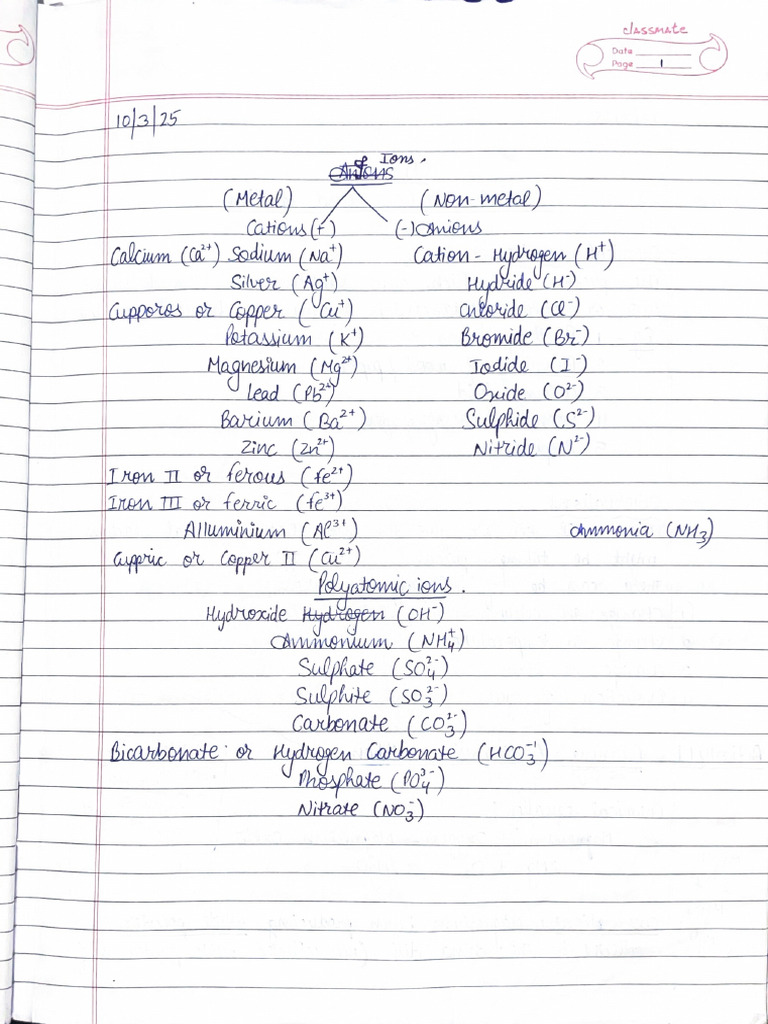 classmate
Date
Page 1
10/3/25
Ions.
(Metal) (Non-metal)
Cations(+) (-)Anions
Calcium (Ca²⁺) Sodium (Na⁺) Cation - Hydrogen (H⁺)
Silver (Ag⁺) Hydride (H⁻)
Cupporos or Copper (Cu⁺) Chloride (Cl⁻)
Potassium (K⁺) Bromide (Br⁻)
Magnesium (Mg²⁺) Iodide (I⁻)
Lead (Pb²⁺) Oxide (O²⁻)
Barium (Ba²⁺) Sulphide (S²⁻)
Zinc (Zn²⁺) Nitride (N²⁻)
Iron II or ferous (fe²⁺)
Iron III or ferric (fe³⁺)
Alluminium (Al³⁺) Ammonia (NH₃)
Cuppric or Copper II (Cu²⁺)
Polyatomic ions.
Hydroxide Hydrogen (OH⁻)
Ammonium (NH₄⁺)
Sulphate (SO₄²⁻)
Sulphite (SO₃²⁻)
Carbonate (CO₃²⁻)
Bicarbonate or Hydrogen Carbonate (HCO₃⁻¹)
Phosphate (PO₄³⁻)
Nitrate (NO₃⁻)